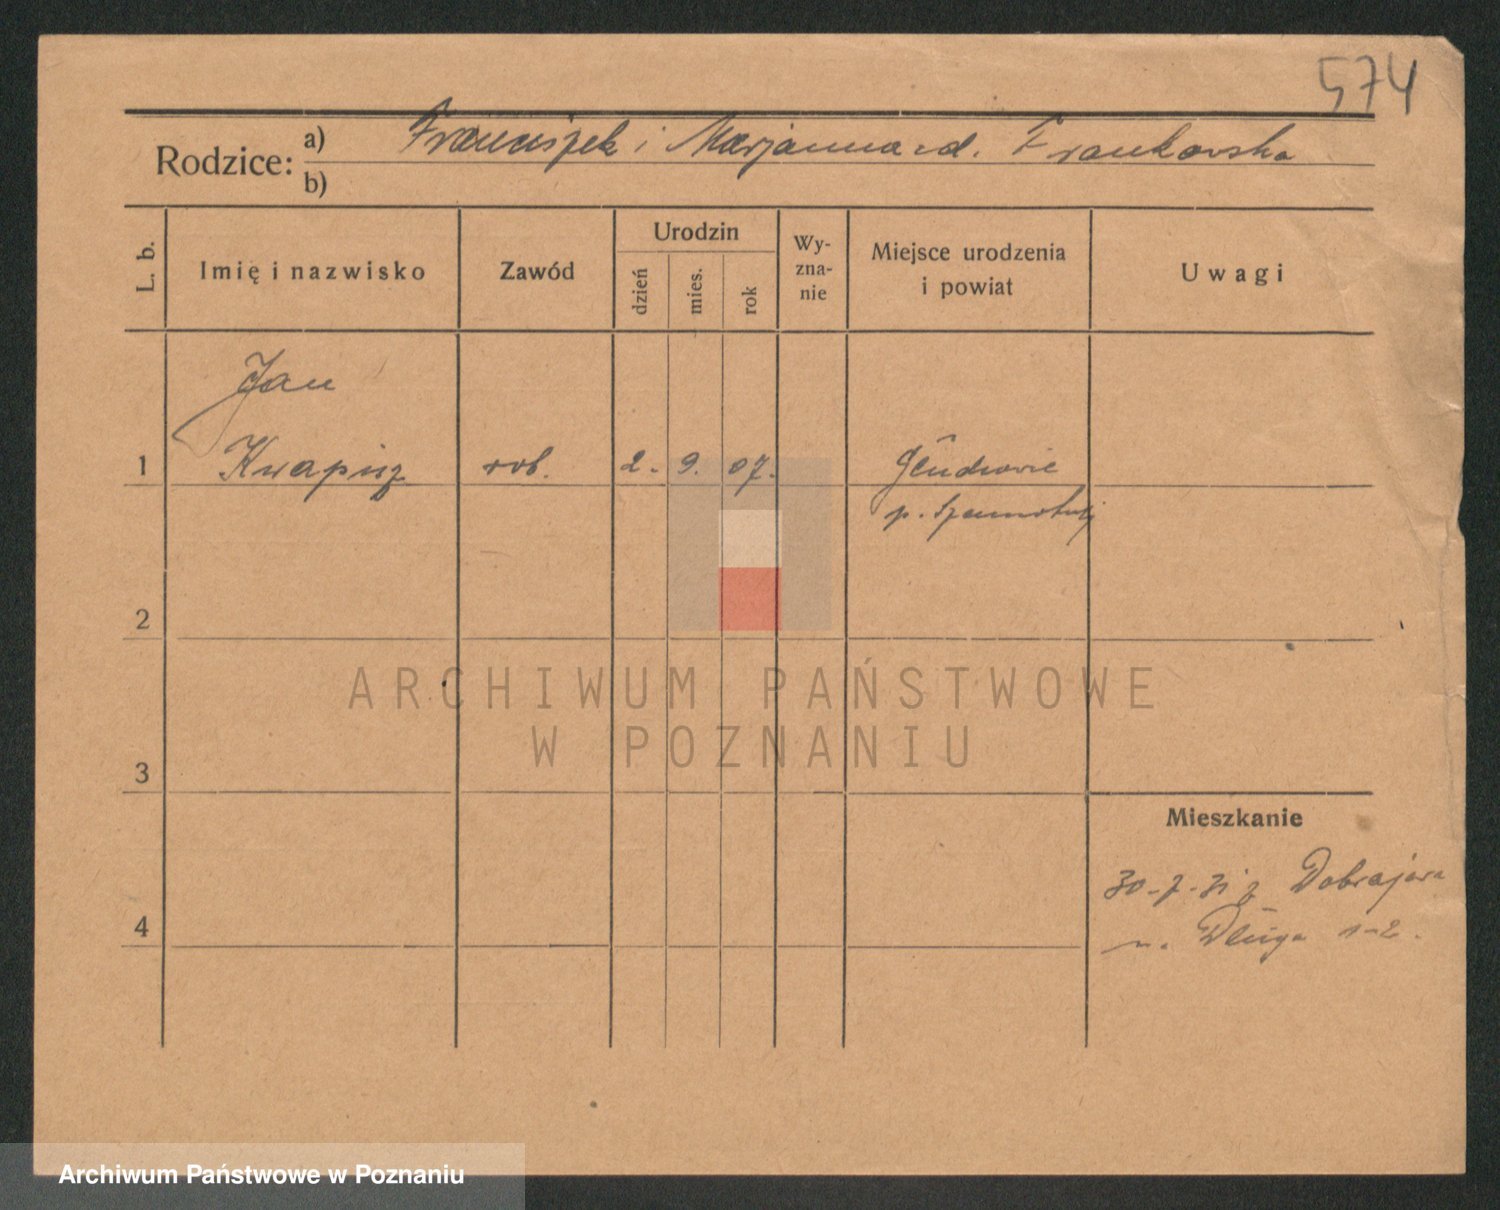 574
Rodzice: a) Franciszek i Marjanna zd. Frankowska
b)
L. b.
Imię i nazwisko
Zawód
Urodzin
dzień
mies.
rok
Wy-
zna-
nie
Miejsce urodzenia
i powiat
Uwagi
Jan
1 Kwapisz rob. 2. 9. 07.
p. Szamotuły
2
3
4
Mieszkanie
30-7-31 z Dobrojewa
Długa 1-2.
ARCHIWUM PAŃSTWOWE
W POZNANIU
Archiwum Państwowe w Poznaniu